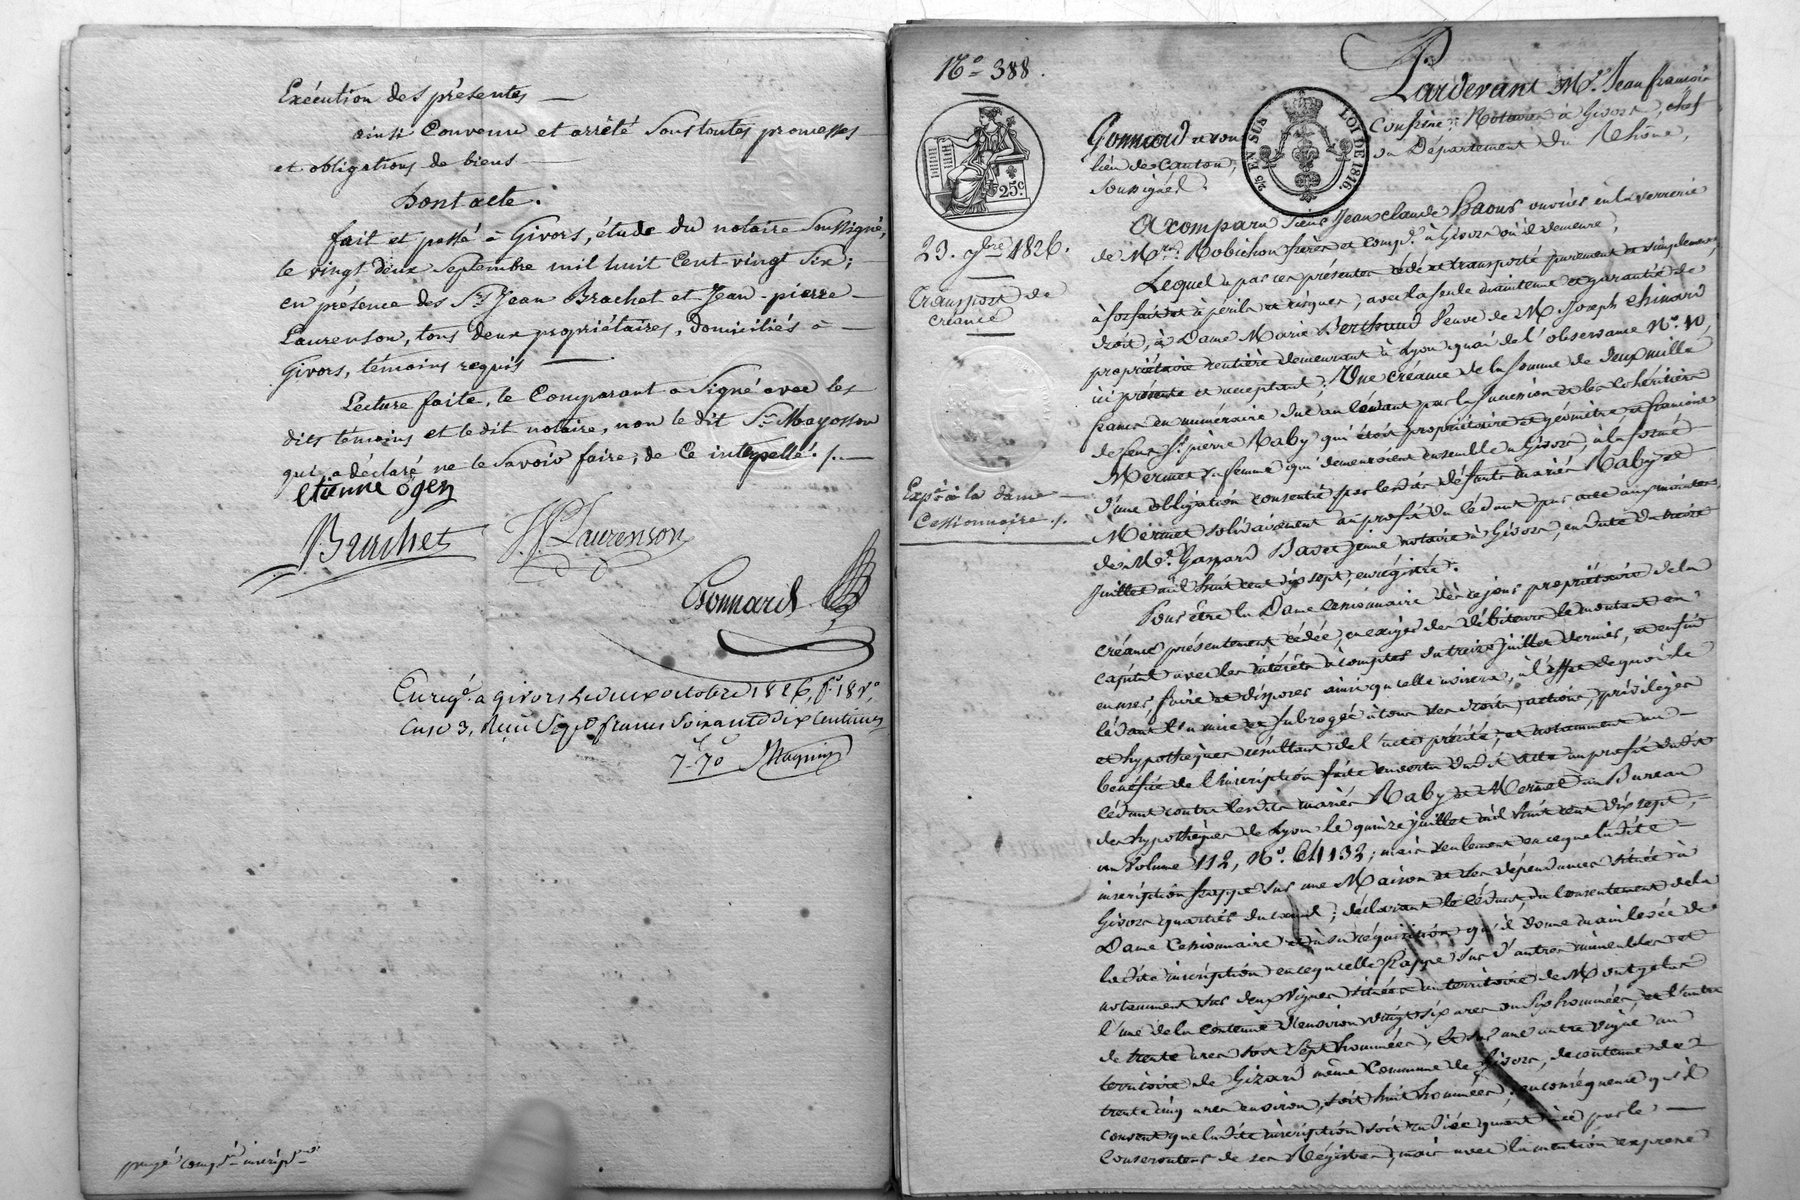 Exécution des présentes
ainsi Convenu et arrêté Sous toutes promesses
et obligations de biens
Dont acte.
fait et passé à Givors, étude du notaire Soussigné,
le vingt deux Septembre mil huit Cent-vingt Six;
en présence des Srs Jean Brachet et Jean-pierre
Laurenson, tous deux propriétaires, domiciliés à
Givors, témoins requis
Lecture faite, le Comparant a Signé avec les
dits témoins et le dit notaire, non le dit Sr Mayosson
qui a déclaré ne le Savoir faire, de Ce interpellé ./.
etienne ogez
Brachet J.P. Laurenson
Gonnard
Enregé. a givors Le deux octobre 1826, fo. 18 vo.
Case 3, Reçu Sept francs Soixante dix Centimes
7-70 Magnin
No. 388.
25 EN SUS
LOI DE 1816.
25c
23. 7bre 1826.
Transport de
créance
Expé. à la dame
Cessionnaire ./.
Pardevant Me. Jean françois
Gonnard et son Confrère, Notaires à Givors, chef
lieu de Canton, du Département du Rhône,
Soussignés.
A comparu Sieur Jean claude Baous ouvrier en la verrerie
de Mrs. Robichon frères et compe. à Givors où il demeure;
Lequel a par ces présentes cédé et transporté purement et simplement,
à forfait et à périls et risques, avec la seule maintenue et garantie de
droit, à Dame Marie Berthaud Veuve de M. Joseph chinard
propriétaire rentière demeurant à Lyon quai de l'observance No. 10,
ici présente et acceptant; Une créance de la somme de deux mille
francs en numéraire due au cédant par la succession et les cohéritiers
de feus Sr. pierre Raby qui étoit propriétaire et géomètre et francoise
Mermet sa femme qui demeuroient ensemble à Givors, à la forme
d'une obligation consentie par lesdits défunts mariés Raby et
Mermet solidairement au profit du cédant par acte aux minutes
de Me. Gaspard Bavet jeune notaire à Givors, en date du treize
juillet mil huit cent dix sept, enregistré.
Pour être la Dame cessionnaire dès ce jour propriétaire de la
créance présentement cédée, en exiger des débiteurs le montant en
capital avec les intérêts à compter du treize juillet dernier, et enfin
en user, faire et disposer ainsi qu'elle avisera, à l'effet de quoi le
cédant l'a mise et subrogée à tous ses droits, actions, privilèges
et hypothèques résultant de l'acte précité, et notamment au
bénéfice de l'inscription faite en vertu dudit acte au profit dudit
cédant contre lesdits mariés Raby et Mermet au Bureau
des hypothèques de Lyon le quinze juillet mil huit cent dix sept,
au Volume 112, No. 64132; mais seulement en ce que ladite
inscription frappe sur une Maison et ses dépendances située à
Givors quartier du canal; déclarant le cédant, du consentement de la
Dame Cessionnaire et à sa réquisition qu'il donne mainlevée de
ladite inscription en ce qu'elle frappe sur d'autres immeubles et
notamment sur deux vignes situées au territoire de Montgelas
l'une de la contenue d'environ vingt six ares ou six hommées, et l'autre
de trente ares soit Sept hommées, Et sur une autre vigne au
territoire de Gizard même Commune de Givors, de contenue de
trente cinq ares environ, soit huit hommées; en conséquence qu'il
consent que ladite inscription soit radiée quant à ce par le
Conservateur de ses Régistres, mais avec la mention expresse